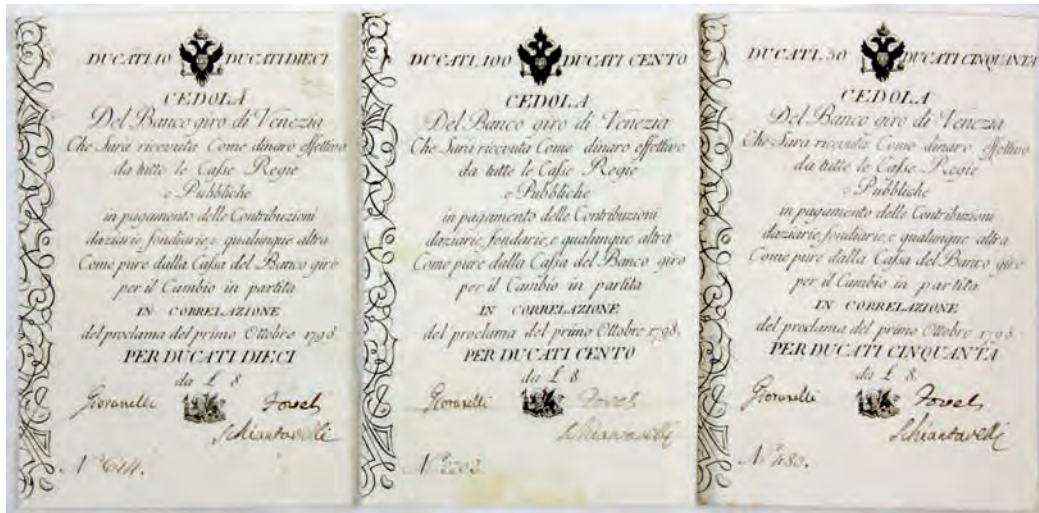 DUCATI.10 DUCATI DIECI
CEDOLA
Del Banco giro di Venezia
Che Sarà ricevuta Come dinaro effettivo
da tutte le Casse Regie
e Pubbliche
in pagamento delle Contribuzioni
daziarie, fondiarie, e qualunque altra
Come pure dalla Cassa del Banco giro
per il Cambio in partita
IN CORRELAZIONE
del proclama del primo Ottobre 1798.
PER DUCATI DIECI
da £ 8.
Giovanelli
Schiantarelli
N.º 644.
DUCATI.100 DUCATI CENTO
CEDOLA
Del Banco giro di Venezia
Che Sarà ricevuta Come dinaro effettivo
da tutte le Casse Regie
e Pubbliche
in pagamento delle Contribuzioni
daziarie, fondarie, e qualunque altra
Come pure dalla Cassa del Banco giro
per il Cambio in partita
IN CORRELAZIONE
del proclama del primo Ottobre 1798.
PER DUCATI CENTO
da £ 8.
Giovanelli
Schiantarelli
DUCATI.50 DUCATI CINQUANTA
CEDOLA
Del Banco giro di Venezia
Che Sarà ricevuta Come dinaro effettivo
da tutte le Casse Regie
e Pubbliche
in pagamento delle Contribuzioni
daziarie, fondiarie, e qualunque altra
Come pure dalla Cassa del Banco giro
per il Cambio in partita
IN CORRELAZIONE
del proclama del primo Ottobre 1798.
PER DUCATI CINQUANTA
da £ 8.
Giovanelli
Schiantarelli